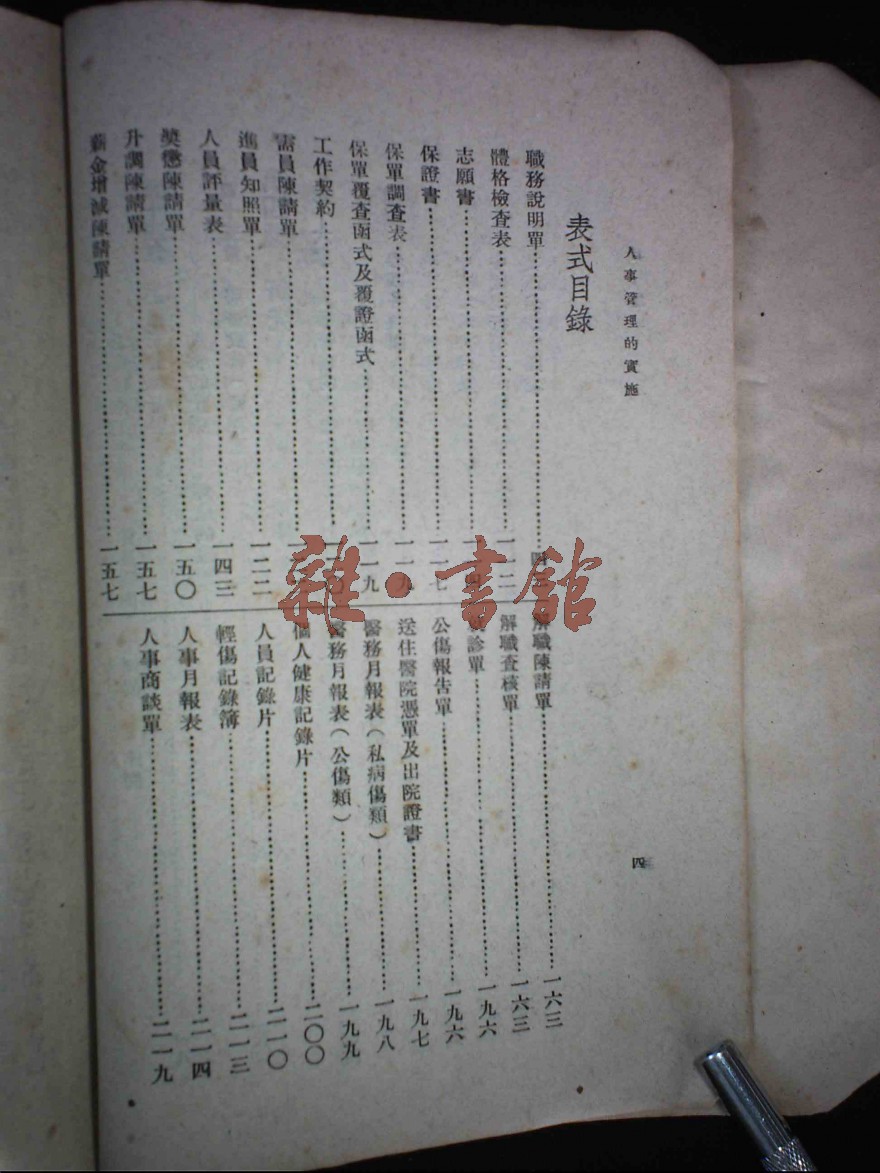 人事管理的實施
四
表式目錄
職務說明單
體格檢查表
志願書
保證書……一一七
保單調查表……一一九
保單覆查函式及覆證函式……一一九
工作契約
需員陳請單
進員知照單……一二二
人員評量表……一四三
獎懲陳請單……一五〇
升調陳請單……一五七
薪金增減陳請單……一五七
解職陳請單……一六三
解職查核單……一六三
診單……一九六
公傷報告單……一九六
送住醫院憑單及出院證書……一九七
醫務月報表(私病傷類)……一九八
醫務月報表(公傷類)……一九九
個人健康記錄片……二〇〇
人員記錄片……二一〇
輕傷記錄簿……二一三
人事月報表……二一四
人事商談單……二一九
雜·書館